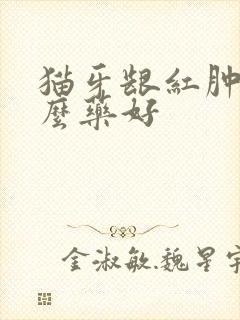 猫牙龈红肿
麼藥好
金淑敏.魏星宇